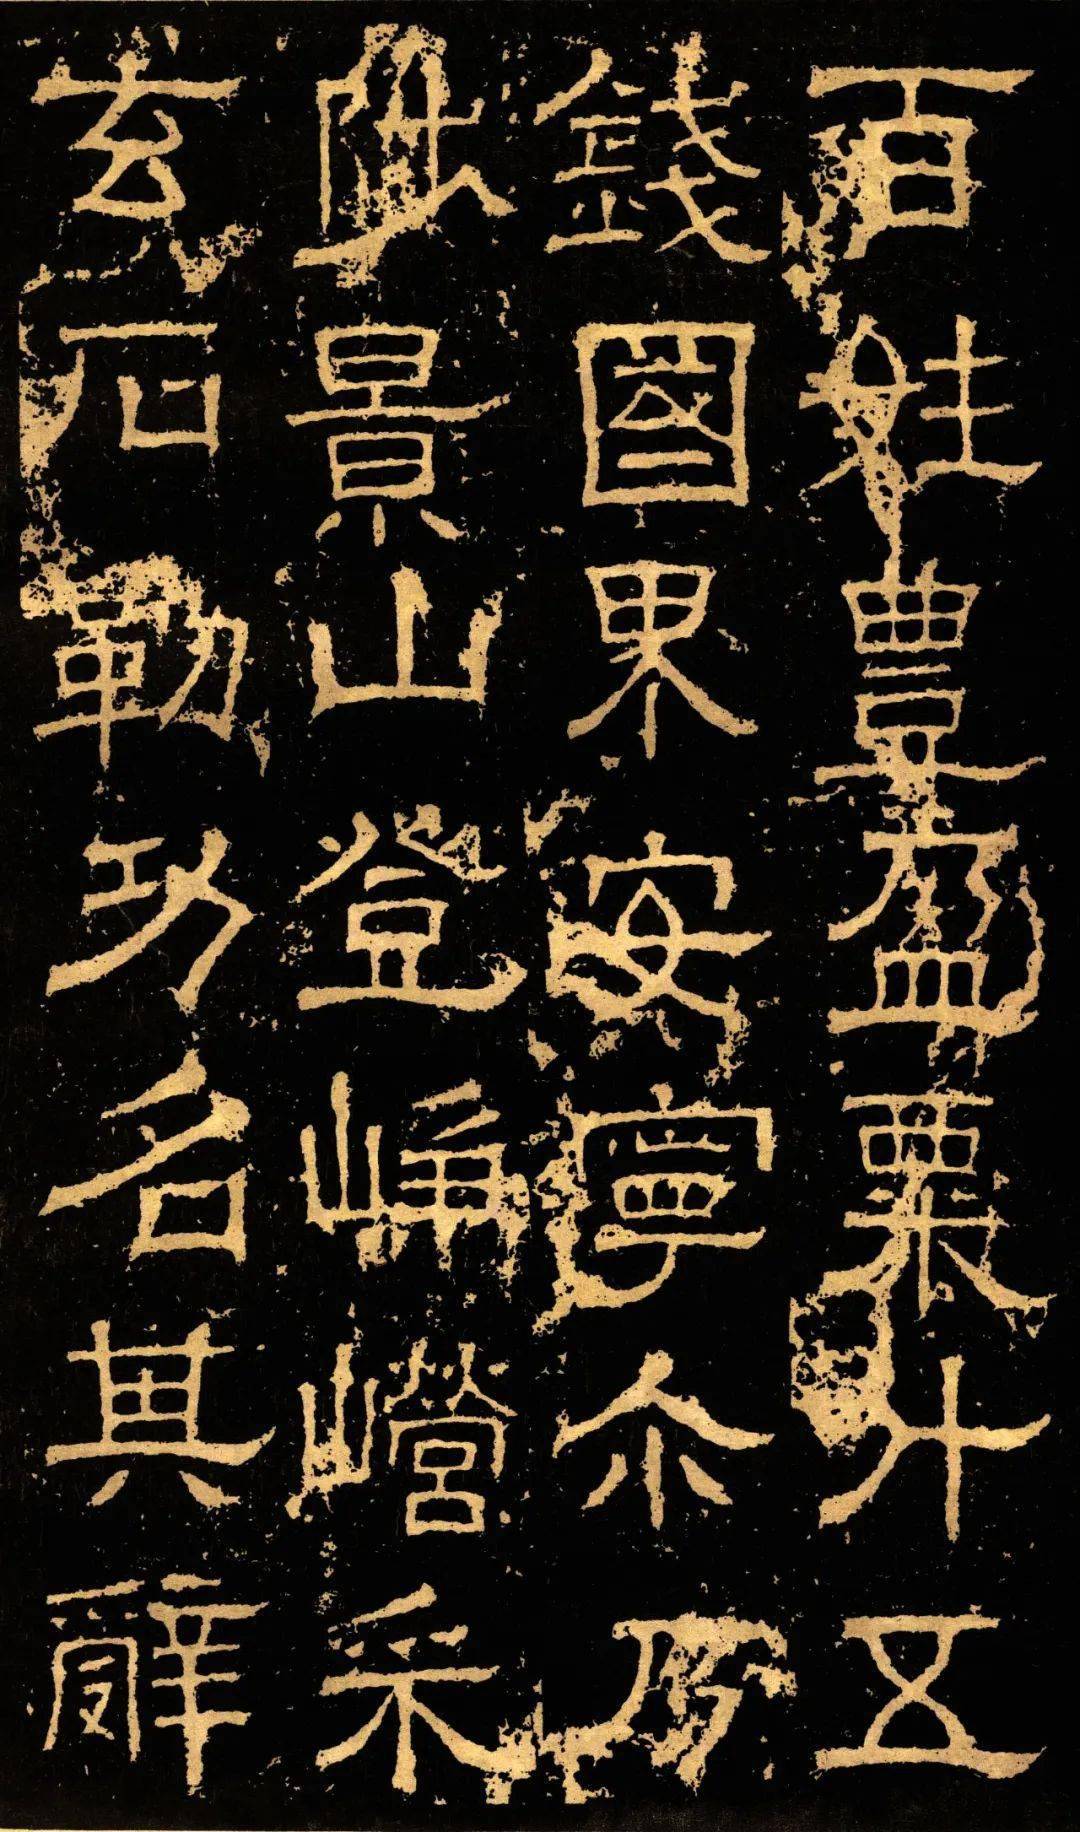 百姓豐盈粟斗五
錢國界安寧尒乃
陟景山登崢巆采
玄石勒功名其辭